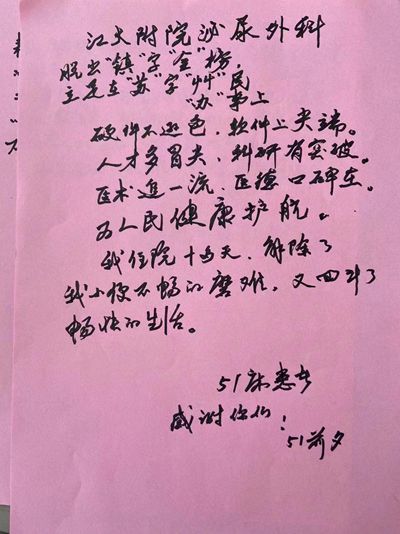 江大附院泌尿外科
脱出"镇"字"金"榜，
立足在"苏"字"艹"民
"办"事上
硬件不逊色，软件上尖端。
人才多冒尖，科研有突破。
医术進一流，医德口碑在。
为人民健康护航。
我住院十多天，解除了
我小便不畅的磨难，又回到了
畅快的生活。
51床患者
感谢你们！
51前夕